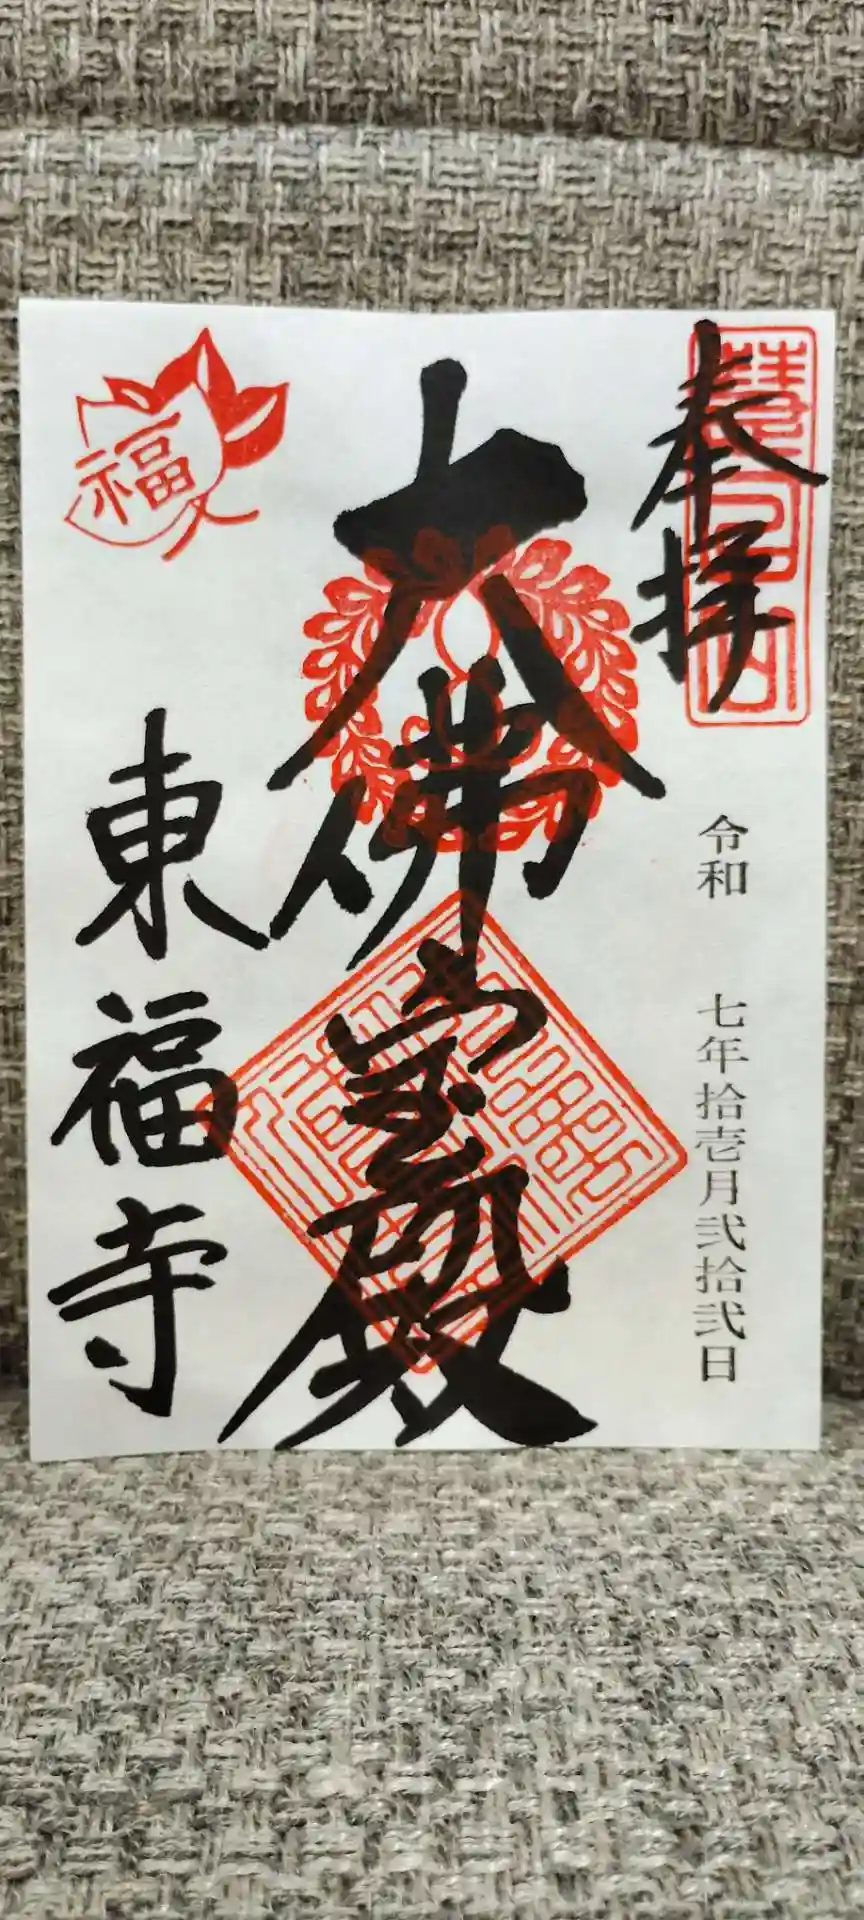 奉拝
令和 七年拾壱月弐拾弐日
大佛宝殿
福
東福寺